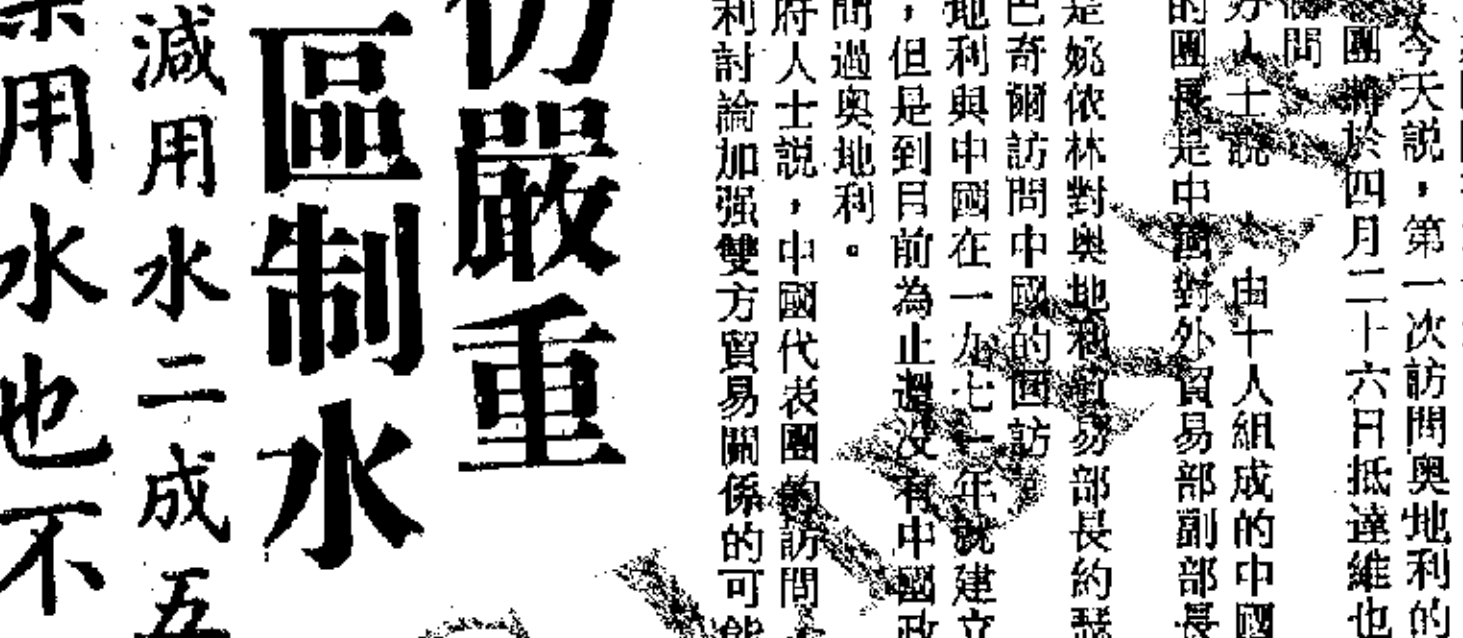 今天説，第一次訪問奧地利的
團將於四月二十六日抵達維也
訪問
人士説 由十人組成的中國
的團長是中國對外貿易部副部長
是姚依林對奧地利貿易部長約瑟
巴奇爾訪問中國的回訪
地利與中國在一九七一年就建立
，但是到目前為止還沒有中國政
問過奧地利。
府人士説，中國代表團的訪問
利討論加强雙方貿易關係的可能
仍嚴重
區制水
減用水二成五
用水也不